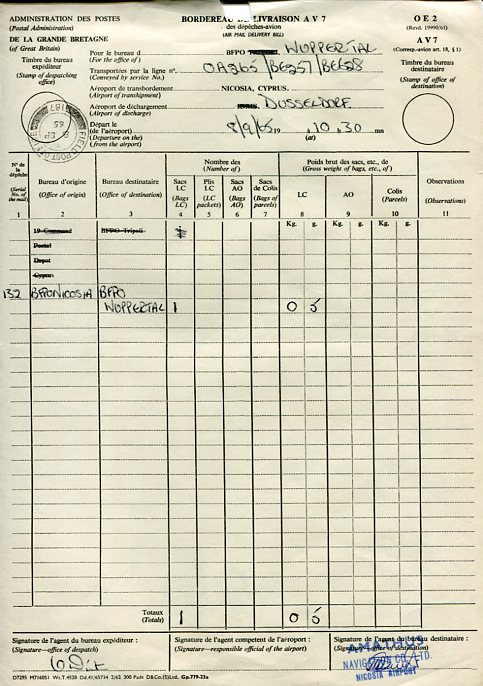 ADMINISTRATION DES POSTES
(Postal Administration)
DE LA GRANDE BRETAGNE
(of Great Britain)
Timbre du bureau
expéditeur
(Stamp of despatching
office)
FIELD POST OFFICE
187
65
BORDEREAU DE LIVRAISON A V 7
des dépêches-avion
(AIR MAIL DELIVERY BILL)
Pour le bureau d
(For the office of)
BFPO WUPPERTAL
Transportées par la ligne nº.
(Conveyed by service No.)
OA265/BE257/BE658
Aéroport de transbordement
(Airport of transhipment)
NICOSIA, CYPRUS.
Aéroport de déchargement
(Airport of discharge)
DUSSELDORF
Départ le
(de l'aéroport)
(Departure on the)
(from the airport)
8/9/65 19 à 10.30 mn
(at)
O E 2
(Revd. 1999/61)
A V 7
(Corresp-avion art. 18, § 1)
Timbre du bureau
destinataire
(Stamp of office of
destination)
Nº de
la
dépêche
(Serial
No. of
the mail)
Bureau d'origine
(Office of origin)
Bureau destinataire
(Office of destination)
Nombre des
(Number of)
Sacs
LC
(Bags
LC)
Plis
LC
(LC
packets)
Sacs
AO
(Bags
AO)
Sacs
de Colis
(Bags of
parcels)
Poids brut des sacs, etc., de
(Gross weight of bags, etc., of)
LC
AO
Colis
(Parcels)
Observations
(Observations)
1 2 3 4 5 6 7 8 9 10 11
Kg. g. Kg. g. Kg. g.
19 Command BFPO Tripoli
Postal
Depot
Cyprus
132 BFPO NICOSIA BFPO
WUPPERTAL 1 0 5
Totaux
(Totals) 1 0 5
Signature de l'agent du bureau expéditeur :
(Signature—office of despatch)
Signature de l'agent competent de l'aéroport :
(Signature—responsible official of the airport)
Signature de l'agent du bureau destinataire :
(Signature—office of destination)
AMATHUS
NAVIGATION CO. LTD.
NICOSIA AIRPORT
D7295 MT16051 Wt.T.4508 Dd.41/65734 2/62 300 Pads D&Co.(S)Ltd. Gp.779-23a